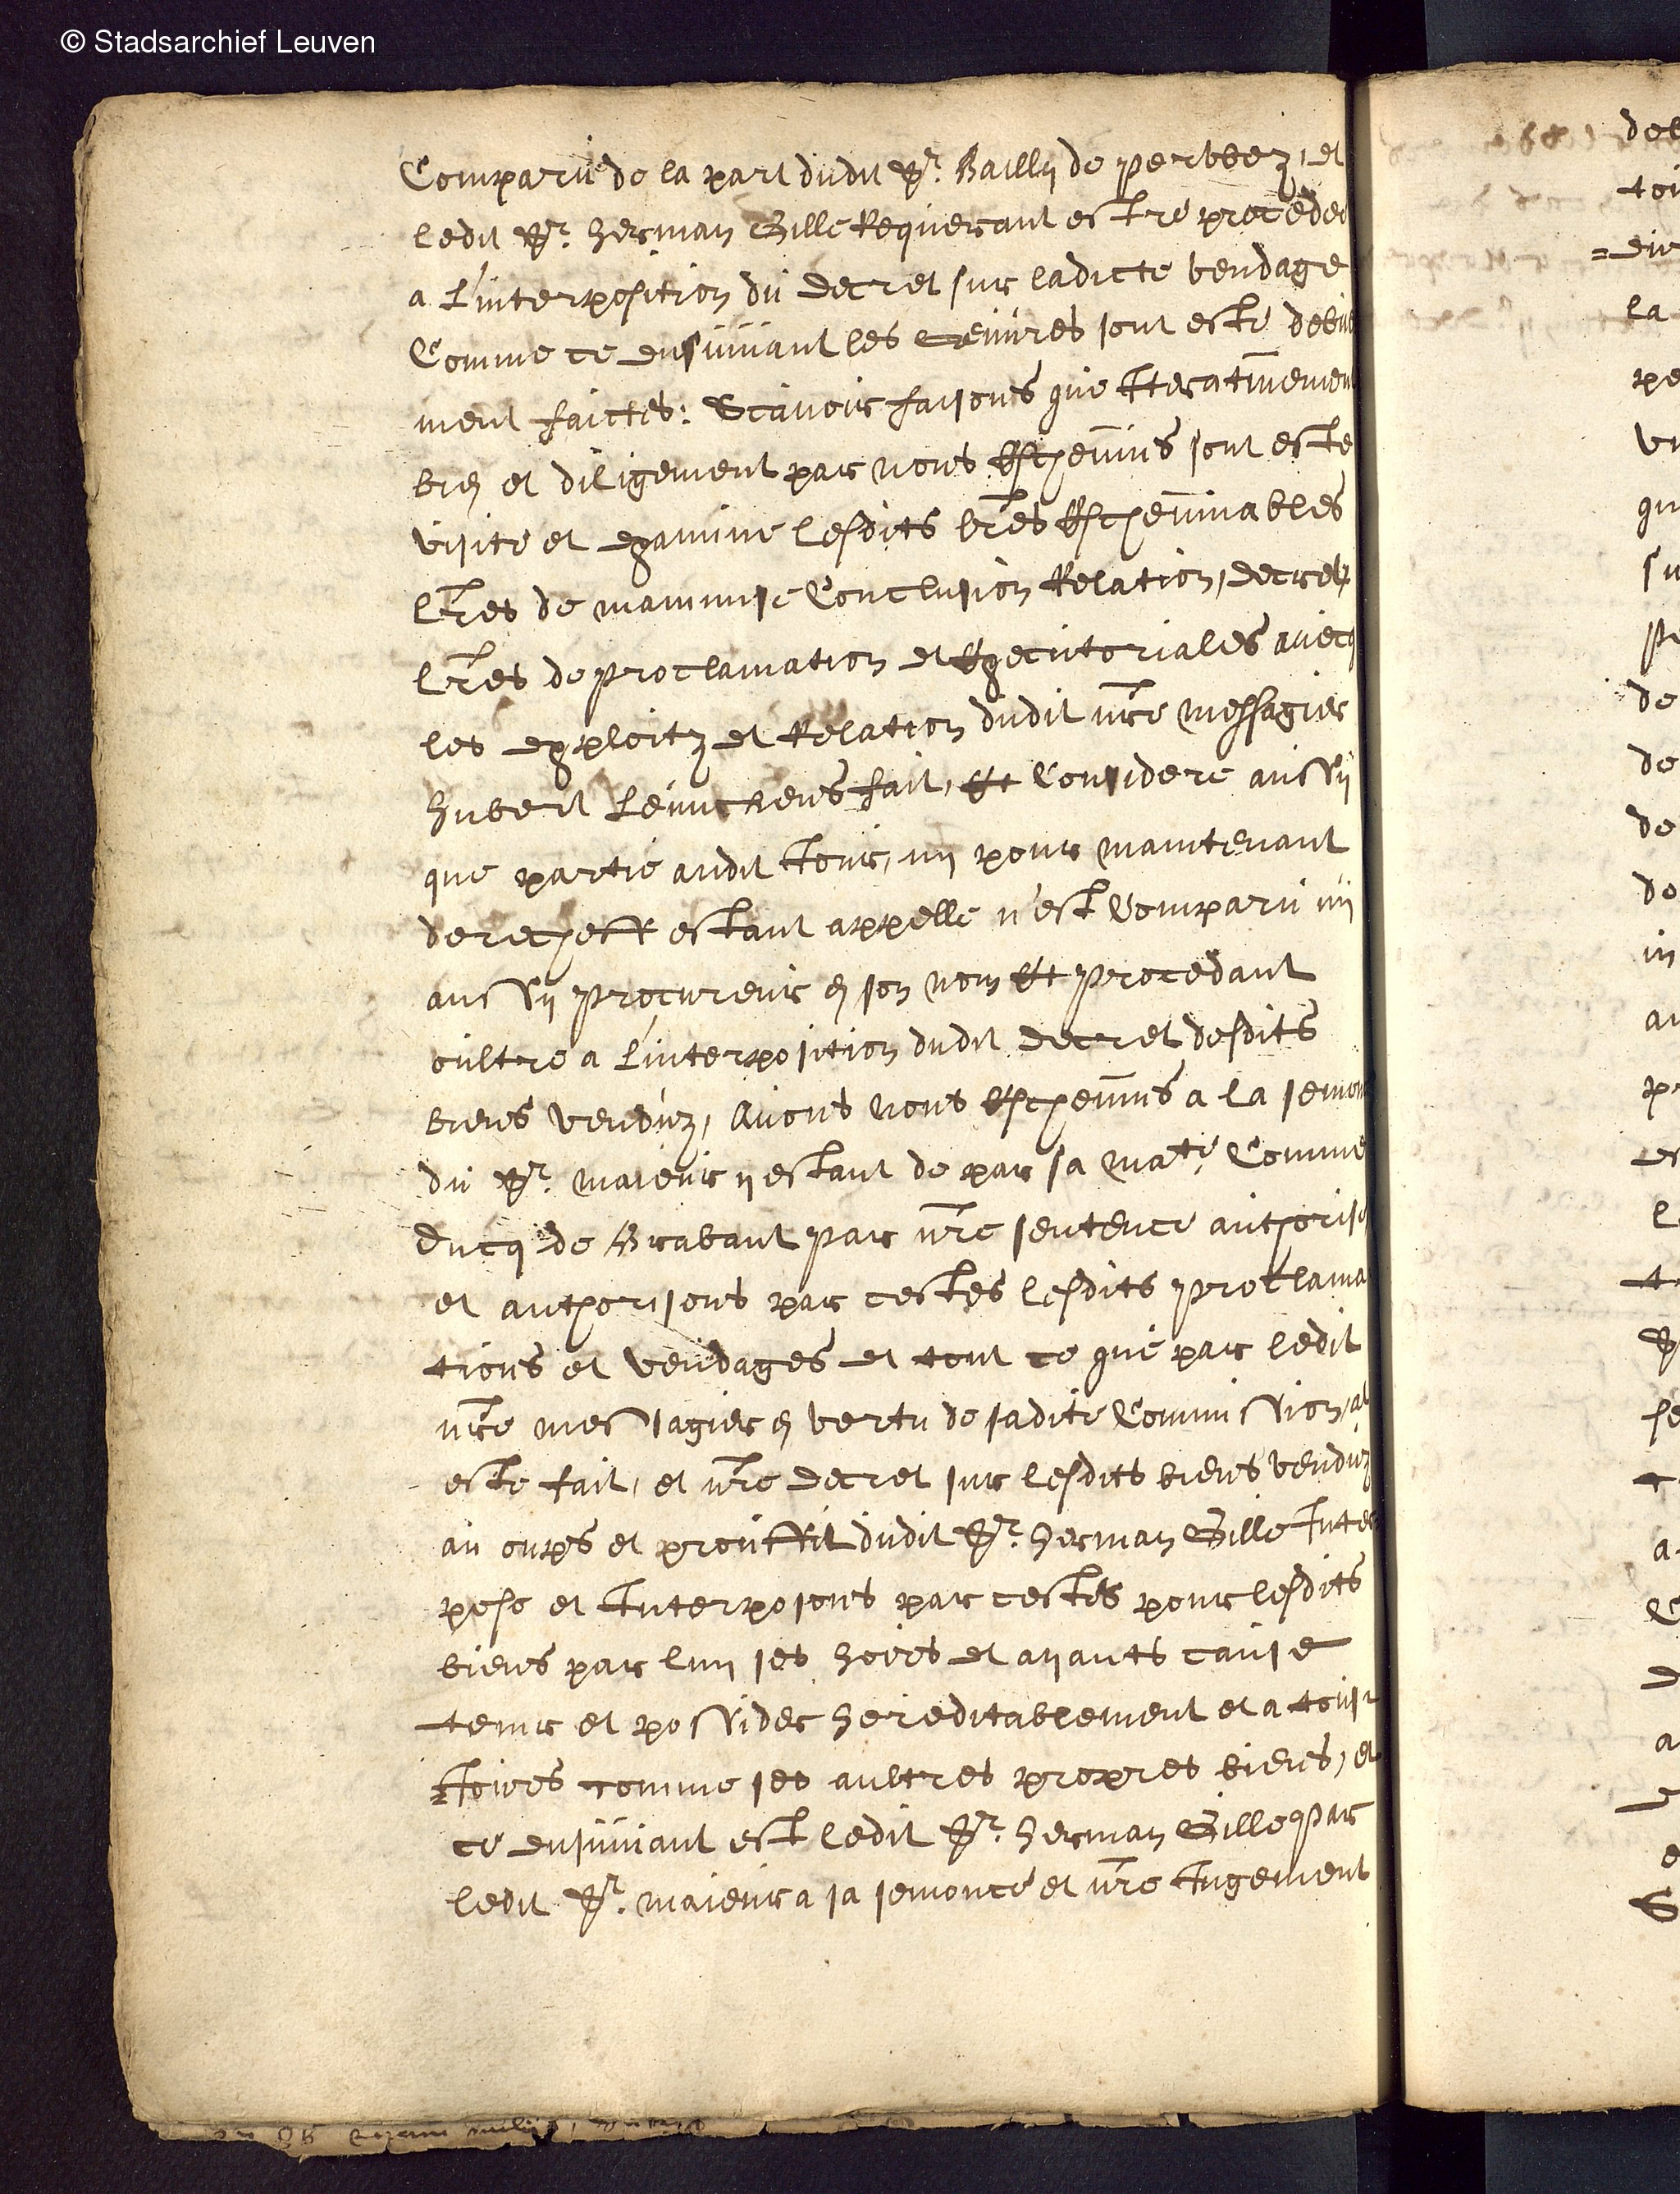 © Stadsarchief Leuven
Comparu de la part dudit Sr. Bailly de perwez, et
ledit Sr. herman Gille Requerant estre proceder
a L'interposition du decret sur ladicte vendage
Comme ce ensuiuant les œuures sont esté debue
ment faictes: Scauoir faisons que Iteratiuement
bien et diligement par nous Escheuins sont esté
visité et examine lesdits lres Escheuinables
lres de mainmise Conclusion Relation, decretz
lres de proclamation et Executoriales auecq
les exploitz et Relation dudit nre messagier
hubert fait, Et Considere aussy
que partie audit iour, ny pour maintenant
derecheff estant appelle n'est Comparu ny
aussy procureur en son nom Et procedant
oultre a L'interposition dudit decret desdits
biens venduz, Auons nous Escheuins a la semon
du Sr. maieur y estant de par sa Mate. Comme
ducq de Brabant par nre sentence authorise
et authorisons par cestes lesdits proclama
tions et vendages et tout ce que par ledit
nre messagier en vertu de sadite Commission at
esté fait, et nre decret sur lesdits biens venduz
au oups et prouffit dudit Sr. herman Gille Inter
pose et Interposons par cestes pour lesdits
biens par luy ses hoirs et ayants cause
tenir et possider hereditablement et a tousi
Ioires comme ses aultres propres biens, et
ce ensuiuant est ledit Sr. herman Gille par
ledit Sr. maieur a sa semonce et nre Iugement
la
de
de
de
in